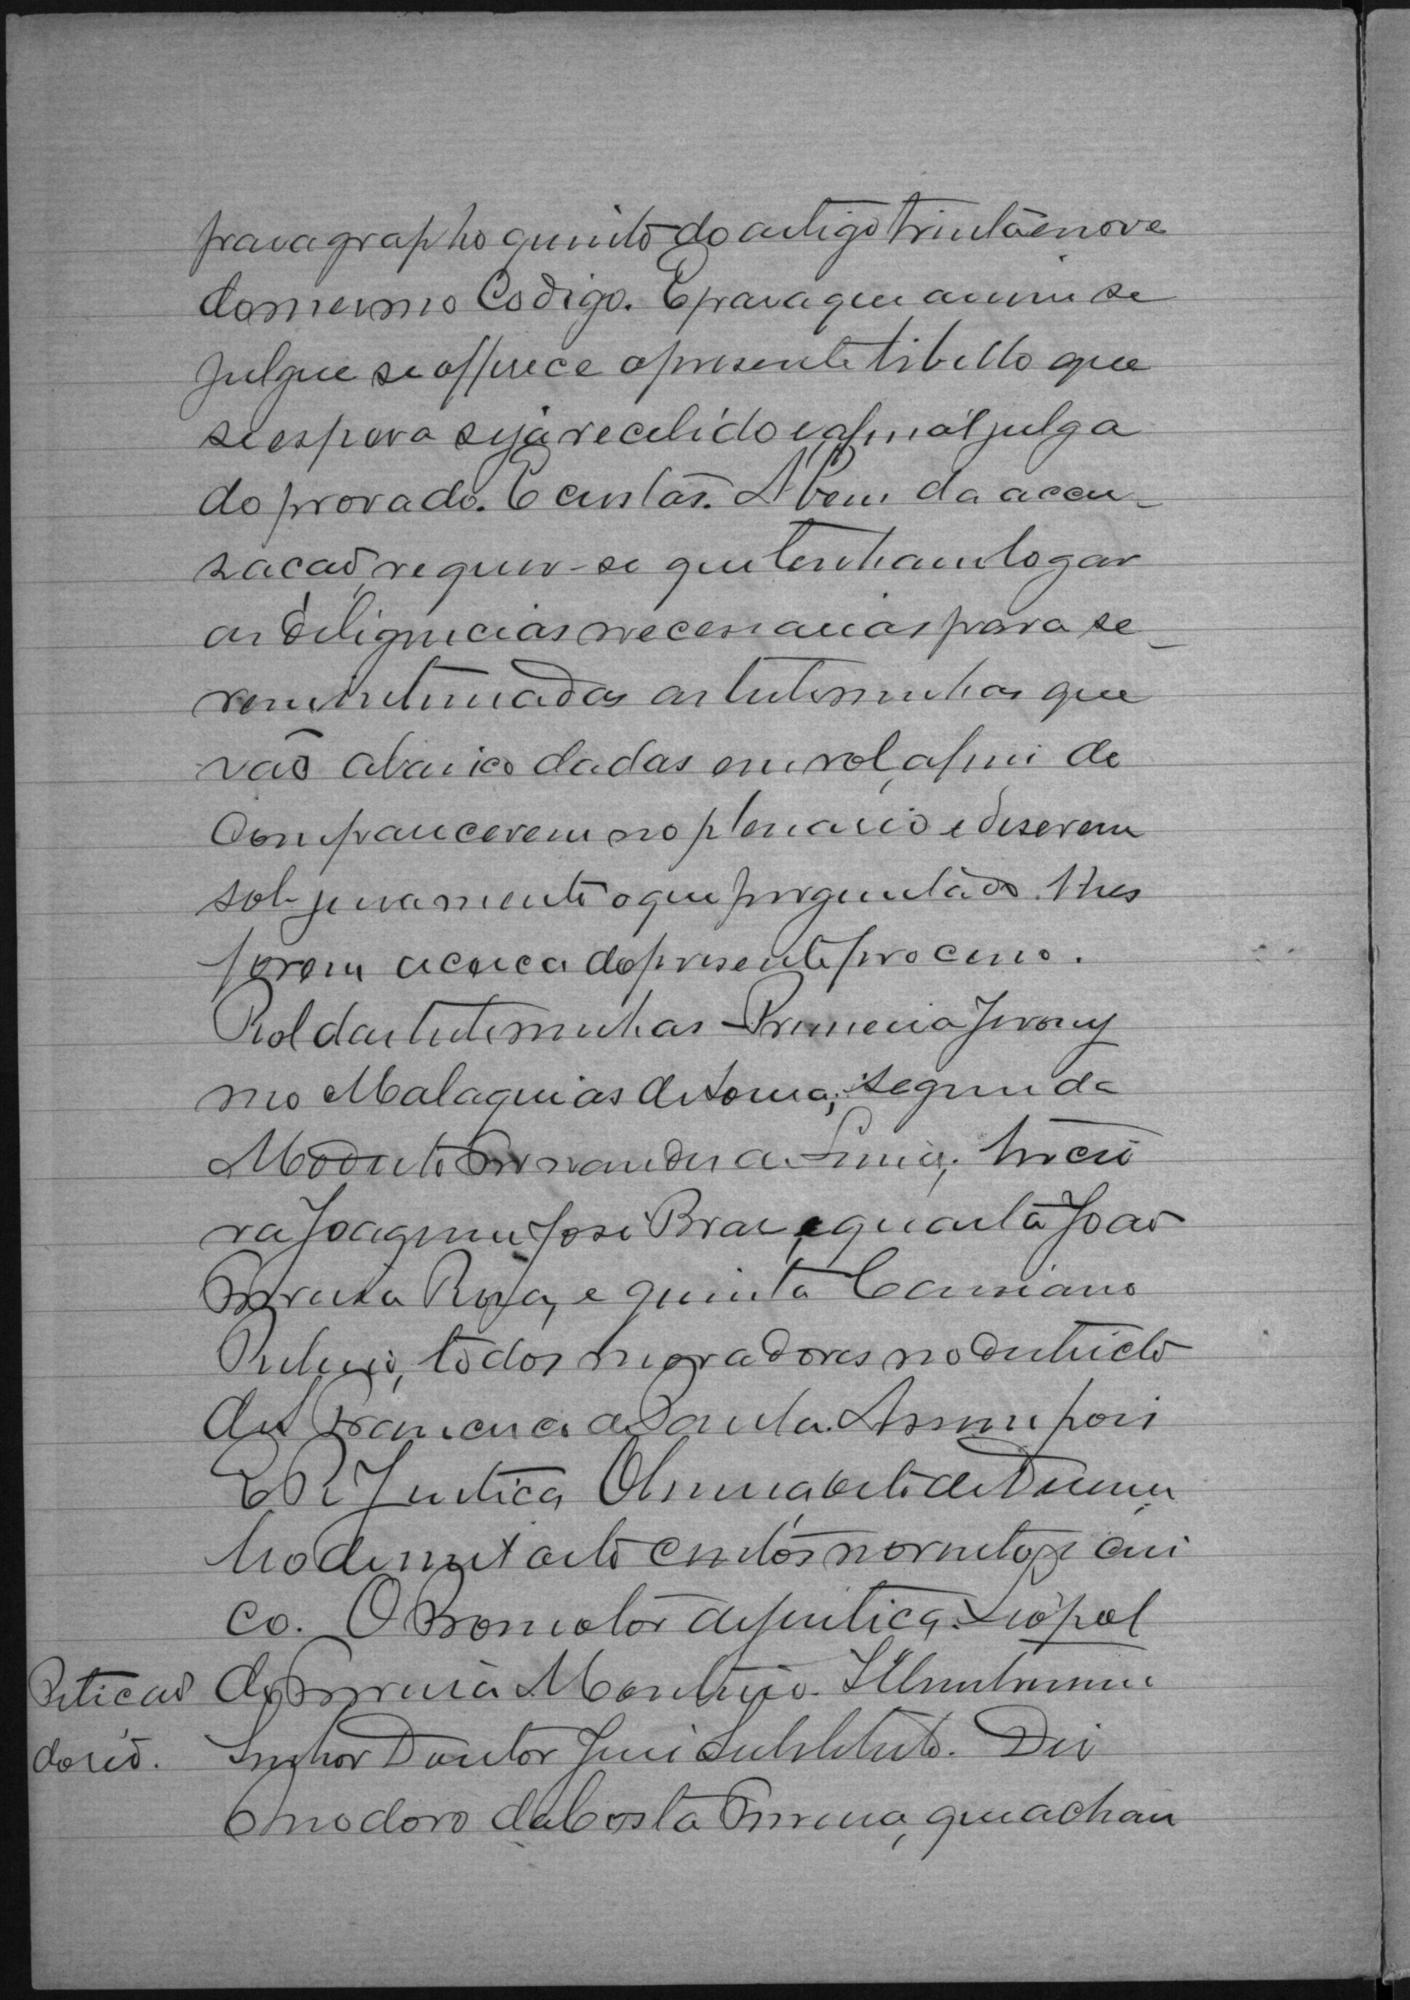 paragrapho quinto do artigo trinta e nove
do mesmo Codigo. E para que assim se
julgue se offerece o presente libello que
se espera seja recebido e afinal julga
do provado. E custas. A bem da accu-
sacaõ, requer-se que tenham logar
as diligencias necessarias para se-
rem intimadas as testemunhas que
vaõ abaixo dadas em rol, afim de
comparecerem no plenario e diserem
sob juramento o que perguntado lhes
forem acerca do presente processo.
Rol das testemunhas - Primeira Jerony
mo Malaquias de Sousa; segunda
Modesto Fernandes de Lima; tercei
ra Joaquim José Braz, e quarta Joaõ
Ferreira Rosa, e quinta Cassiano
Ribeiro, todos moradores no districto
de S Francisco de Paula. Assim pois
E. R. Justiça,
mo de mil oito centos noventa e cin
co. O Promotor de justiça. Leopol
Peticaõ do Ferreira Monteiro. Illustrissimo
do reo. Senhor Doutor Juiz Substituto. Diz
Enodoro da Costa Ferreira, que achan